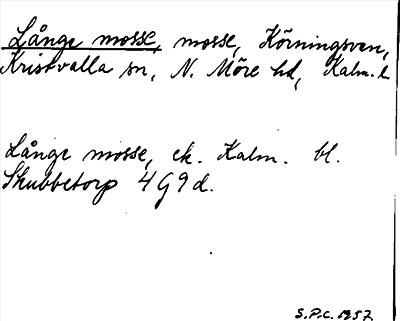 Långe mosse, mosse, Körningsven,
Kristvalla sn, N. Möre hd, Kalm. l
Långe mosse, ek. Kalm. bl.
Skubbetorp 4G9d.
S.P.C. 1957